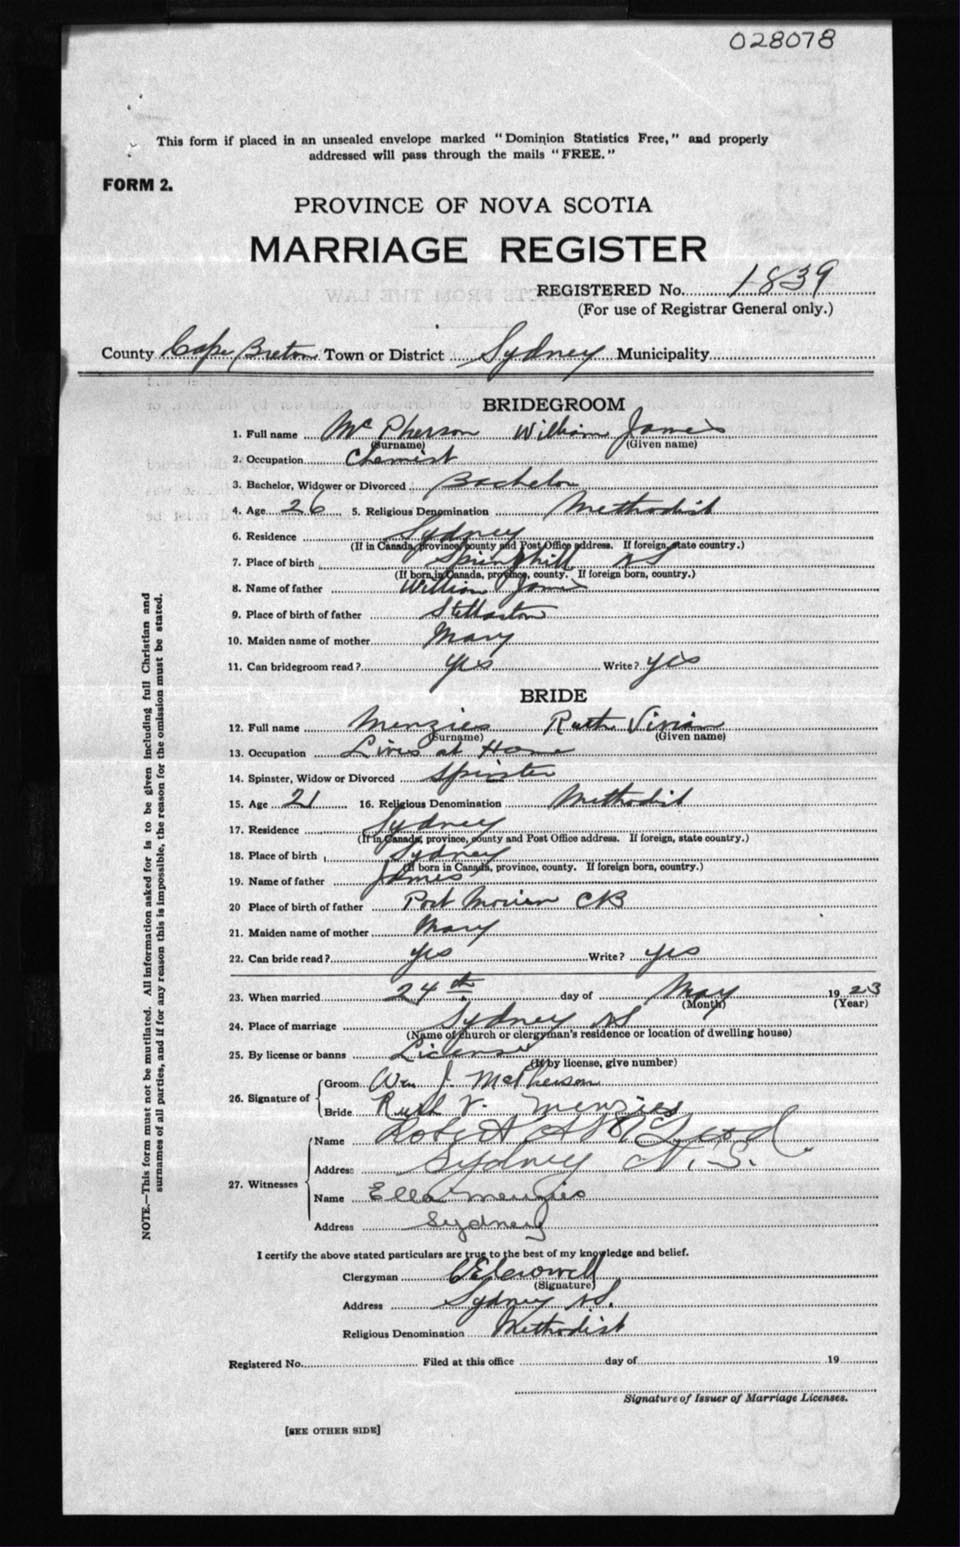 028078
This form if placed in an unsealed envelope marked "Dominion Statistics Free," and properly
addressed will pass through the mails "FREE."
FORM 2.
PROVINCE OF NOVA SCOTIA
MARRIAGE REGISTER
REGISTERED No. 1839
(For use of Registrar General only.)
County Cape Breton Town or District Sydney Municipality
BRIDEGROOM
1. Full name McPherson William James
(Surname) (Given name)
2. Occupation Chemist
3. Bachelor, Widower or Divorced Bachelor
4. Age 26 5. Religious Denomination Methodist
6. Residence Sydney
(If in Canada, province, county and Post Office address. If foreign, state country.)
7. Place of birth Springhill NS
(If born in Canada, province, county. If foreign born, country.)
8. Name of father William James
9. Place of birth of father Stellarton
10. Maiden name of mother Mary
11. Can bridegroom read? yes Write? yes
BRIDE
12. Full name Menzies Ruth Vivian
(Surname) (Given name)
13. Occupation Lives at Home
14. Spinster, Widow or Divorced Spinster
15. Age 21 16. Religious Denomination Methodist
17. Residence Sydney
(If in Canada, province, county and Post Office address. If foreign, state country.)
18. Place of birth Sydney
(If born in Canada, province, county. If foreign born, country.)
19. Name of father James
20 Place of birth of father Port Morien CB
21. Maiden name of mother Mary
22. Can bride read? yes Write? yes
23. When married 24th day of May 1923
(Month) (Year)
24. Place of marriage Sydney NS
(Name of church or clergyman's residence or location of dwelling house)
25. By license or banns License
(If by license, give number)
26. Signature of Groom Wm J. McPherson
Bride Ruth V. Menzies
27. Witnesses Name Robert A McLeod.
Address Sydney N.S.
Name Ella Menzies
Address Sydney
I certify the above stated particulars are true to the best of my knowledge and belief.
Clergyman C E Crowell
(Signature)
Address Sydney NS.
Religious Denomination Methodist
Registered No. Filed at this office day of 19
Signature of Issuer of Marriage Licenses.
[SEE OTHER SIDE]
NOTE.—This form must not be mutilated. All information asked for is to be given including full Christian and
surnames of all parties, and if for any reason this is impossible, the reason for the omission must be stated.